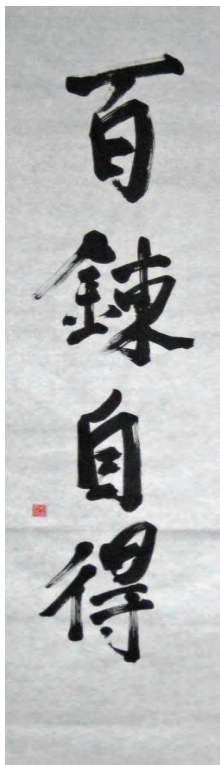 百錬自得